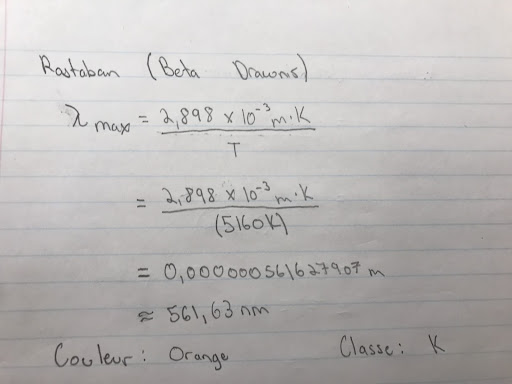 Rastaban (Beta Draconis)
λ max = 2,898 x 10⁻³ m·K / T
= 2,898 x 10⁻³ m·K / (5160K)
= 0,000000561627907 m
≈ 561,63 nm
Couleur : Orange Classe : K